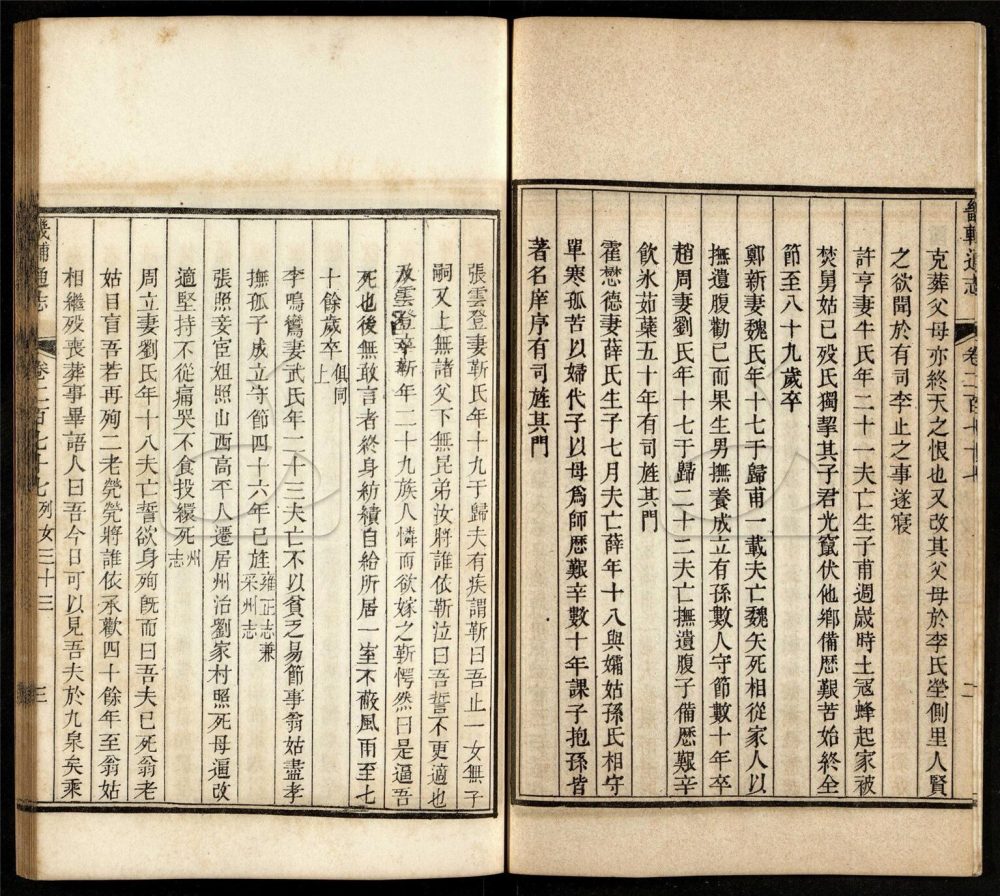 畿輔通志 卷二百七十七
克葬父母亦終天之恨也又改其父母於李氏塋側里人賢
之欲聞於有司李止之事遂寢
許亨妻牛氏年二十一夫亡生子甫週歲時土寇蜂起家被
焚舅姑已歿氏獨挈其子君光竄伏他鄉備歷艱苦始終全
節至八十九歲卒
鄭新妻魏氏年十七于歸甫一載夫亡魏矢死相從家人以
撫遺腹勸已而果生男撫養成立有孫數人守節數十年卒
趙周妻劉氏年十七于歸二十二夫亡撫遺腹子備歷艱辛
飲氷茹蘗五十年有司旌其門
霍懋德妻薛氏生子七月夫亡薛年十八與孀姑孫氏相守
單寒孤苦以婦代子以母爲師歷艱辛數十年課子抱孫皆
著名庠序有司旌其門
張雲登妻靳氏年十九于歸夫有疾謂靳曰吾止一女無子
嗣又上無諸父下無昆弟汝將誰依靳泣曰吾誓不更適也
及雲登卒靳年二十九族人憐而欲嫁之靳愕然曰是逼吾
死也後無敢言者終身紡績自給所居一室不蔽風雨至七
十餘歲卒俱同上
李鳴鸞妻武氏年二十三夫亡不以貧乏易節事翁姑盡孝
撫孤子成立守節四十六年已旌雍正志兼采州志
張照妾宦姐照山西高平人遷居州治劉家村照死母逼改
適堅持不從痛哭不食投繯死州志
周立妻劉氏年十八夫亡誓欲身殉旣而曰吾夫已死翁老
姑目盲吾若再殉二老煢煢將誰依承歡四十餘年至翁姑
相繼歿喪葬事畢語人曰吾今日可以見吾夫於九泉矣乘
畿輔通志 卷二百七十七 列女三十三 三